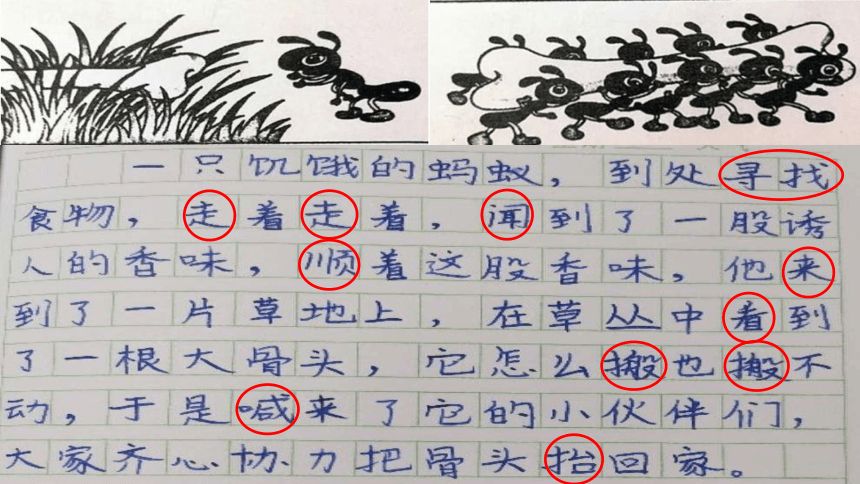 一只饥饿的蚂蚁，到处寻找
食物，走着走着，闻到了一股诱
人的香味，顺着这股香味，他来
到了一片草地上，在草丛中看到
了一根大骨头，它怎么搬也搬不
动，于是喊来了它的小伙伴们，
大家齐心协力把骨头抬回家。